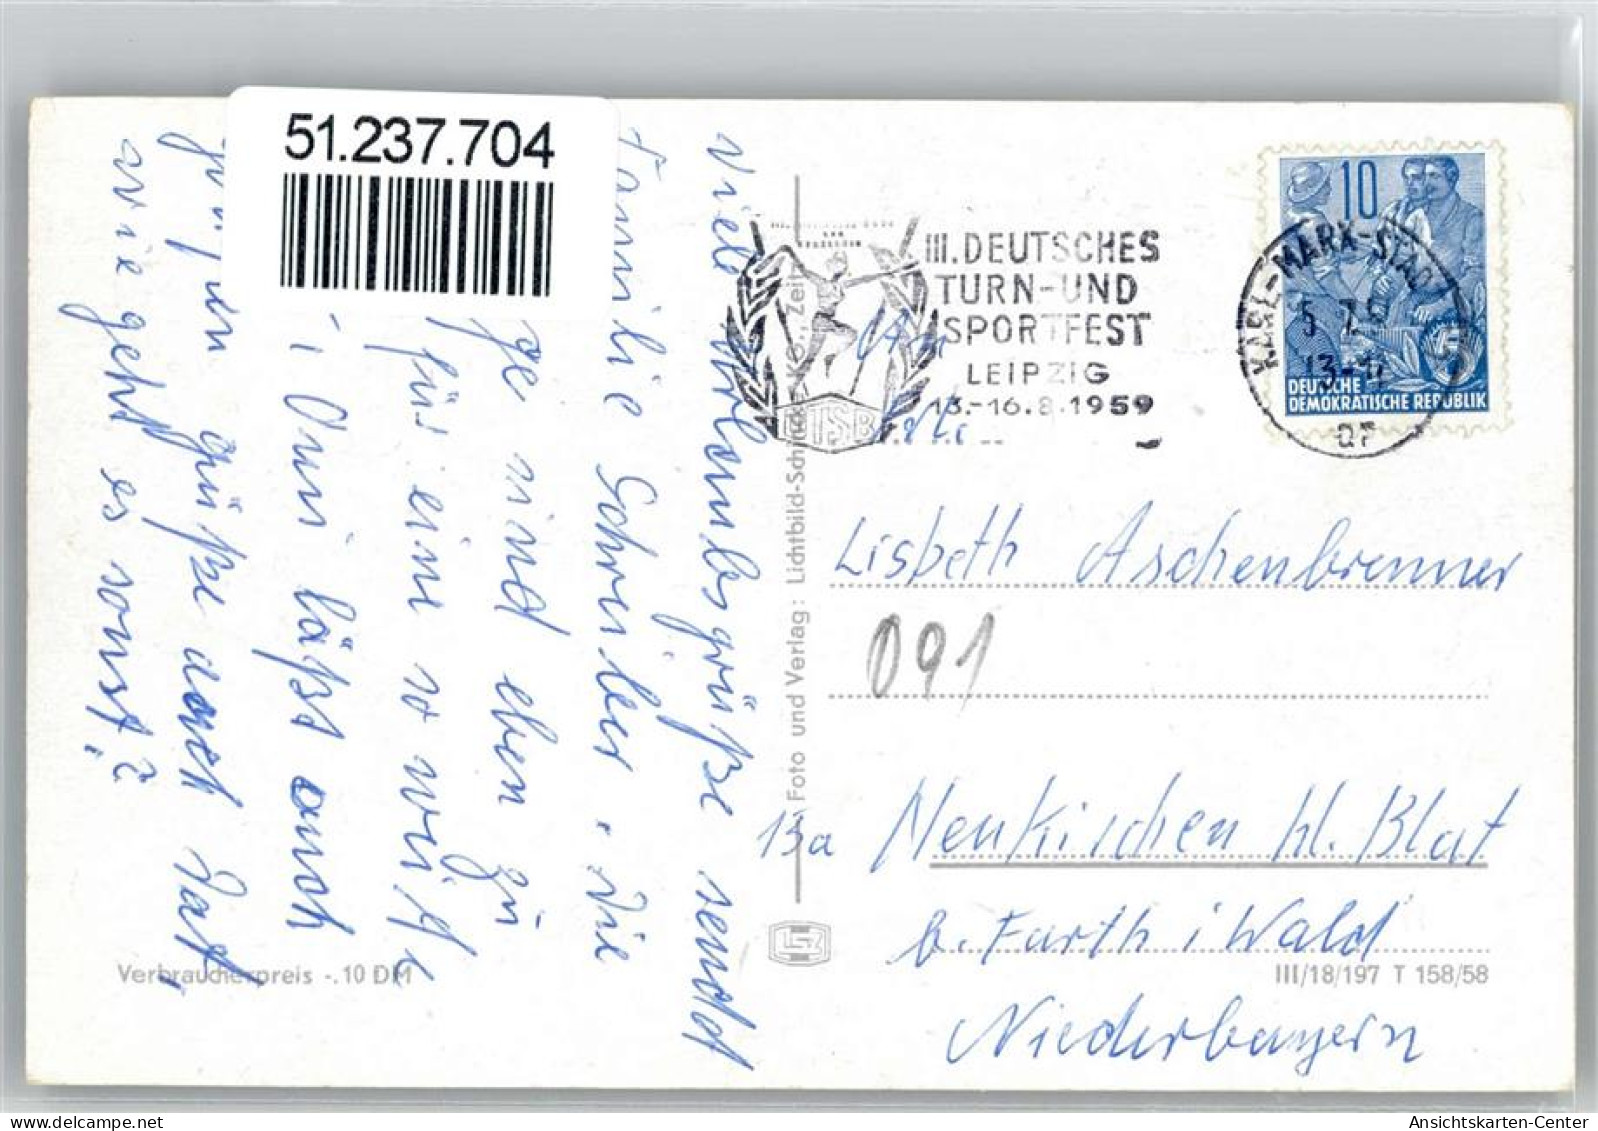 51.237.704
Viele Urlaubsgrüße sendet
Familie Schreiber, die
ge sind eben zu
für eine so weite
Omi läßt auch
grüßen auch
wie geht es sonst?
Verbraucherpreis -.10 DM
Foto und Verlag: Lichtbild-Schincke KG., Zeitz
III. DEUTSCHES
TURN-UND
SPORTFEST
LEIPZIG
13.-16.8.1959
DTSB
KARL-MARX-STADT
5.7.5
13-1
10
DEUTSCHE
DEMOKRATISCHE REPUBLIK
An
Lisbeth Aschenbrenner
091
13a Neukirchen hl. Blut
b. Furth i Wald
III/18/197 T 158/58
Niederbayern
Ansichtskarten-Center